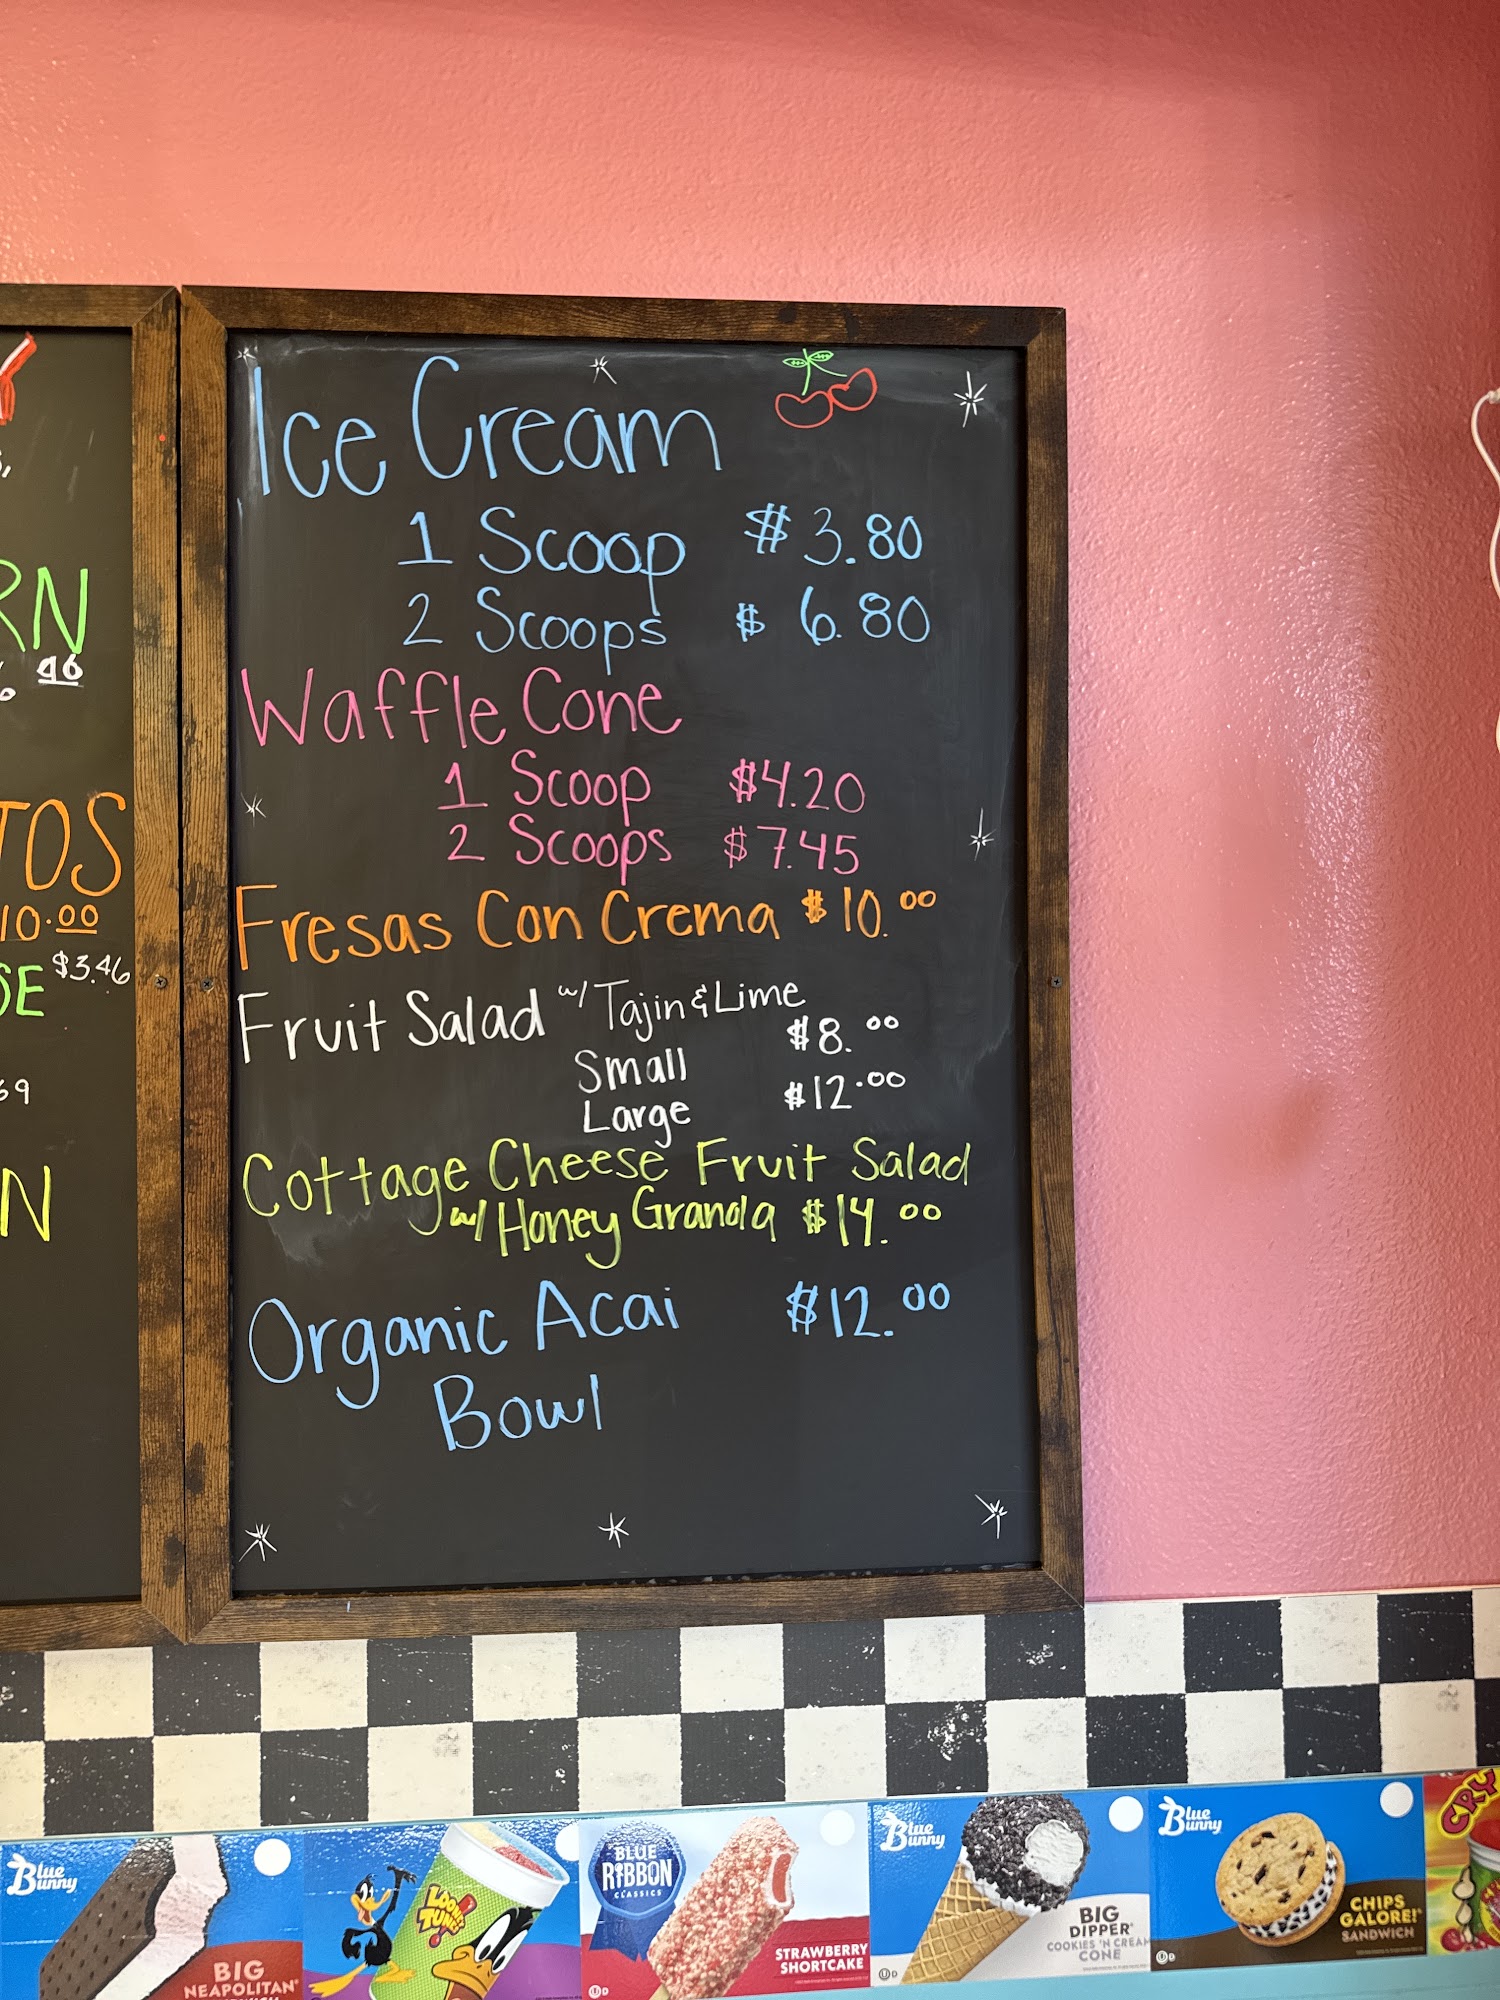 RN
46
TOS
10.00
SE $3.46
69
N
Ice Cream
1 Scoop $3.80
2 Scoops $6.80
Waffle Cone
1 Scoop $4.20
2 Scoops $7.45
Fresas Con Crema $10.00
Fruit Salad w/ Tajin & Lime
Small $8.00
Large $12.00
Cottage Cheese Fruit Salad
w/ Honey Granola $14.00
Organic Acai $12.00
Bowl
Blue Bunny
BIG
NEAPOLITAN
LOONEY TUNES
BLUE
RIBBON
CLASSICS
STRAWBERRY
SHORTCAKE
Blue Bunny
BIG
DIPPER
COOKIES 'N CREAM
CONE
Blue Bunny
CHIPS
GALORE!
SANDWICH
CRY